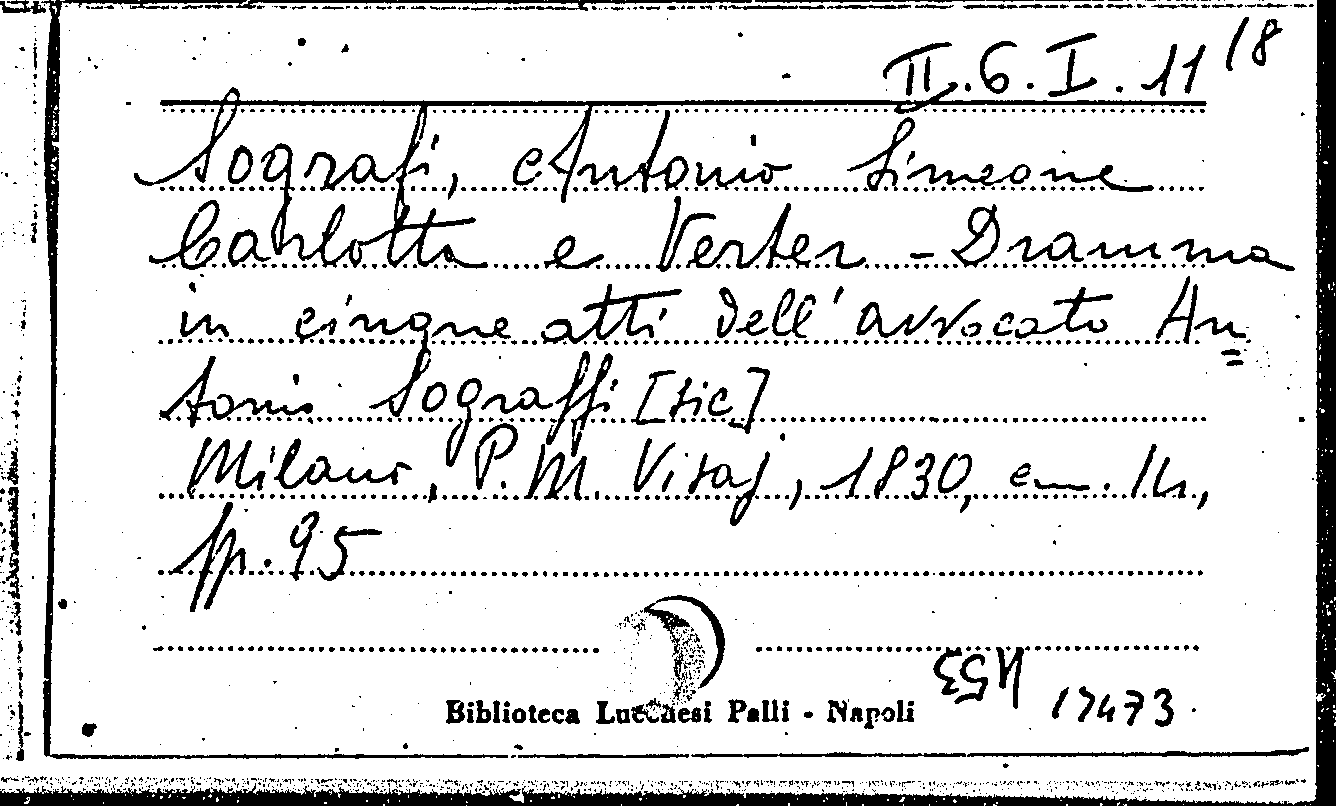 II.6.I.11 /8
Sografi, Antonio Simeone
Carlotta e Verter - Dramma
in cinque atti dell' avvocato An=
tonio Sograffi [sic]
Milano, P. M. Visaj, 1830, cm. 14,
pp. 95
Biblioteca Lucchesi Palli - Napoli
17473